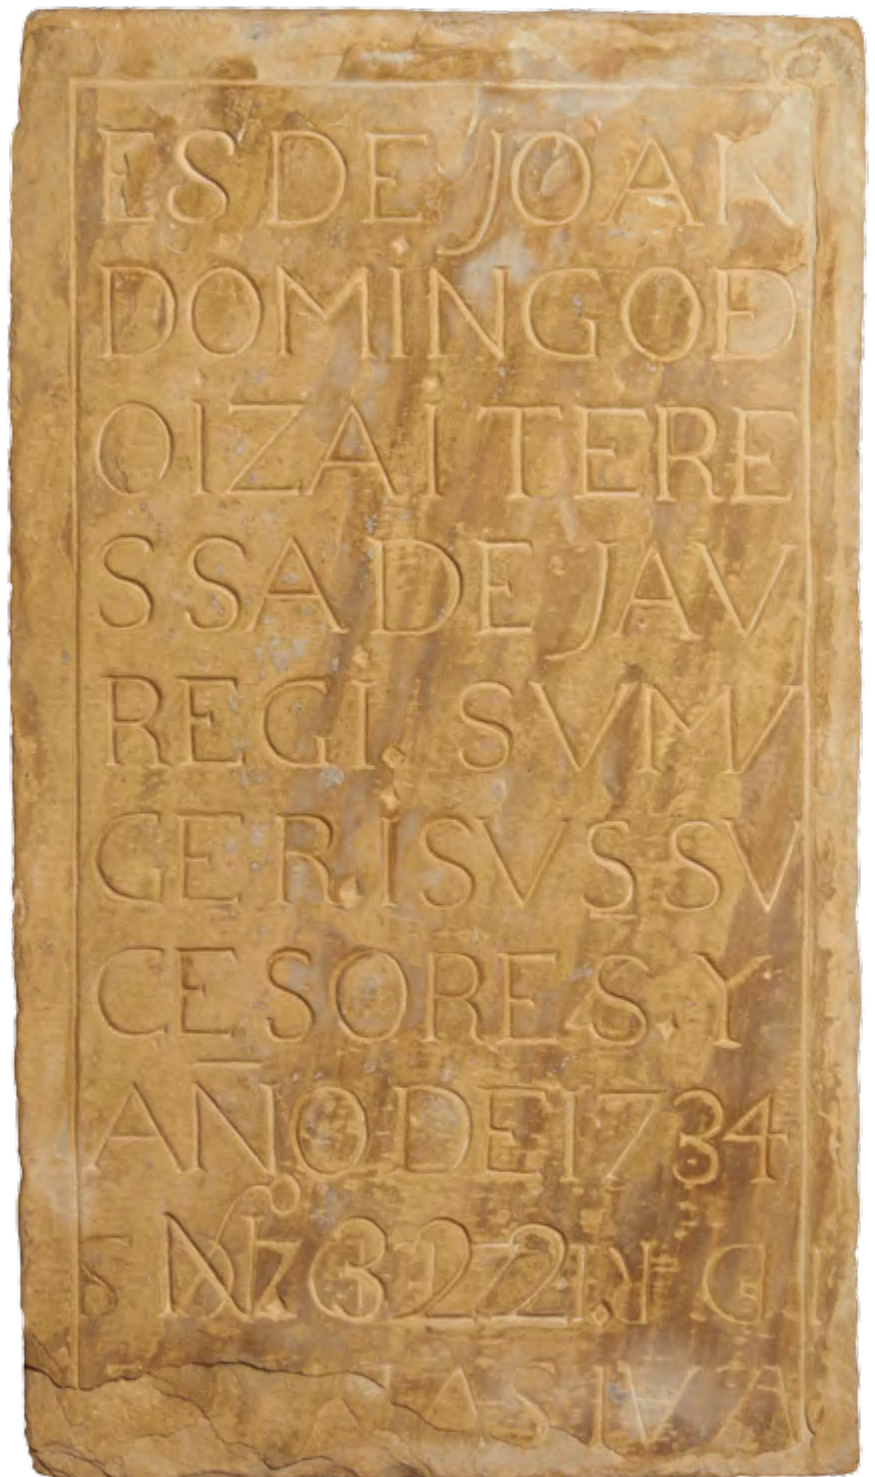 ES DE JOAN
DOMINGO D
OIZA I TERE
SSA DE JAV
REGI. SV MV
GER. I SVS SV
CESORES. Y
AÑO DE 1734
No 322